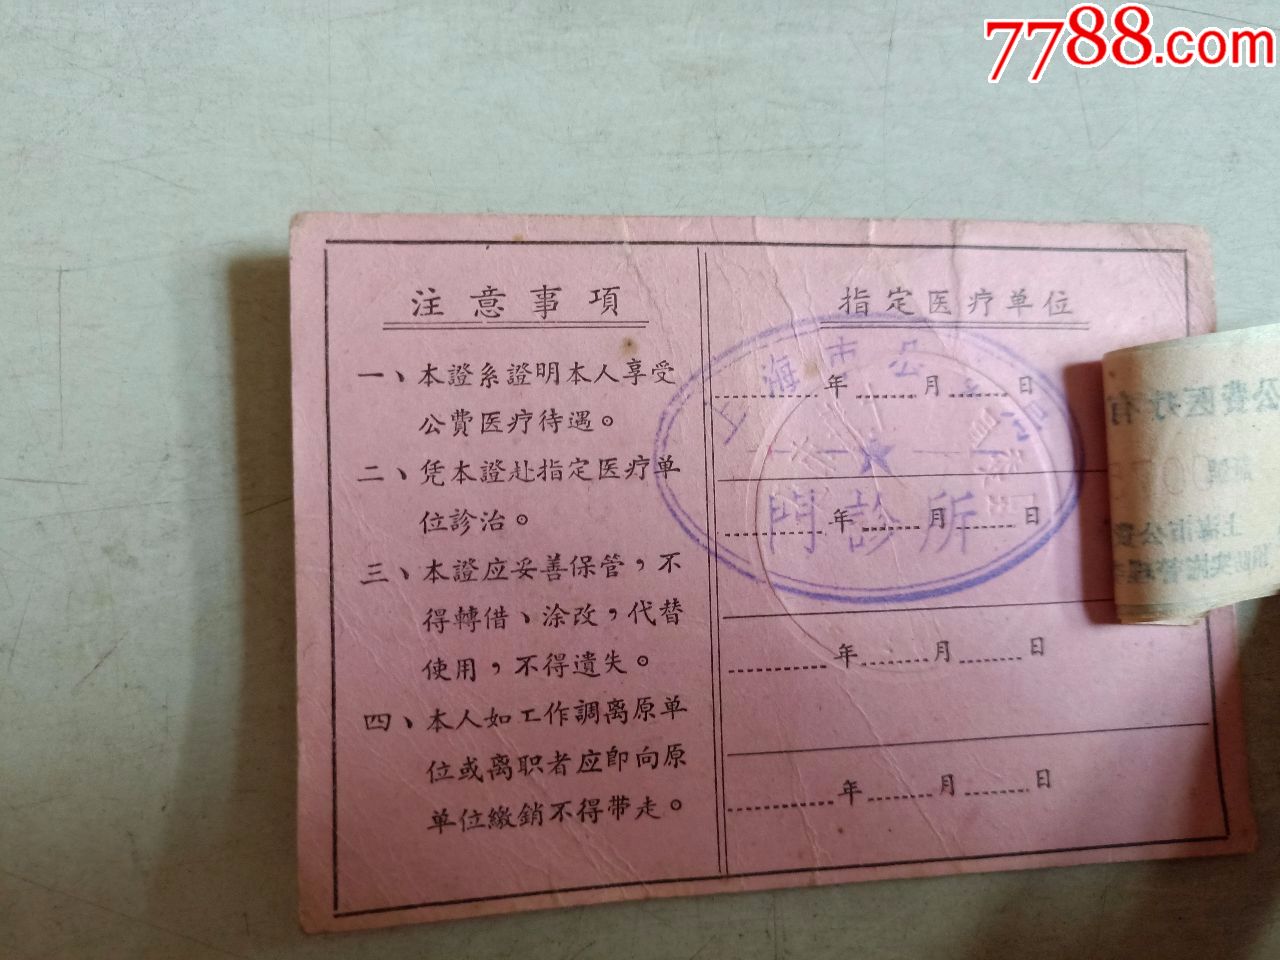 7788.com
注意事項
一、本證系證明本人享受
公費医疗待遇。
二、凭本證赴指定医疗单
位診治。
三、本證应妥善保管，不
得轉借、涂改，代替
使用，不得遺失。
四、本人如工作調离原单
位或离职者应即向原
单位繳銷不得带走。
指定医疗单位
上海市公
年 月 日
門診所
年 月 日
年 月 日
年 月 日
公費医疗
上海市公費